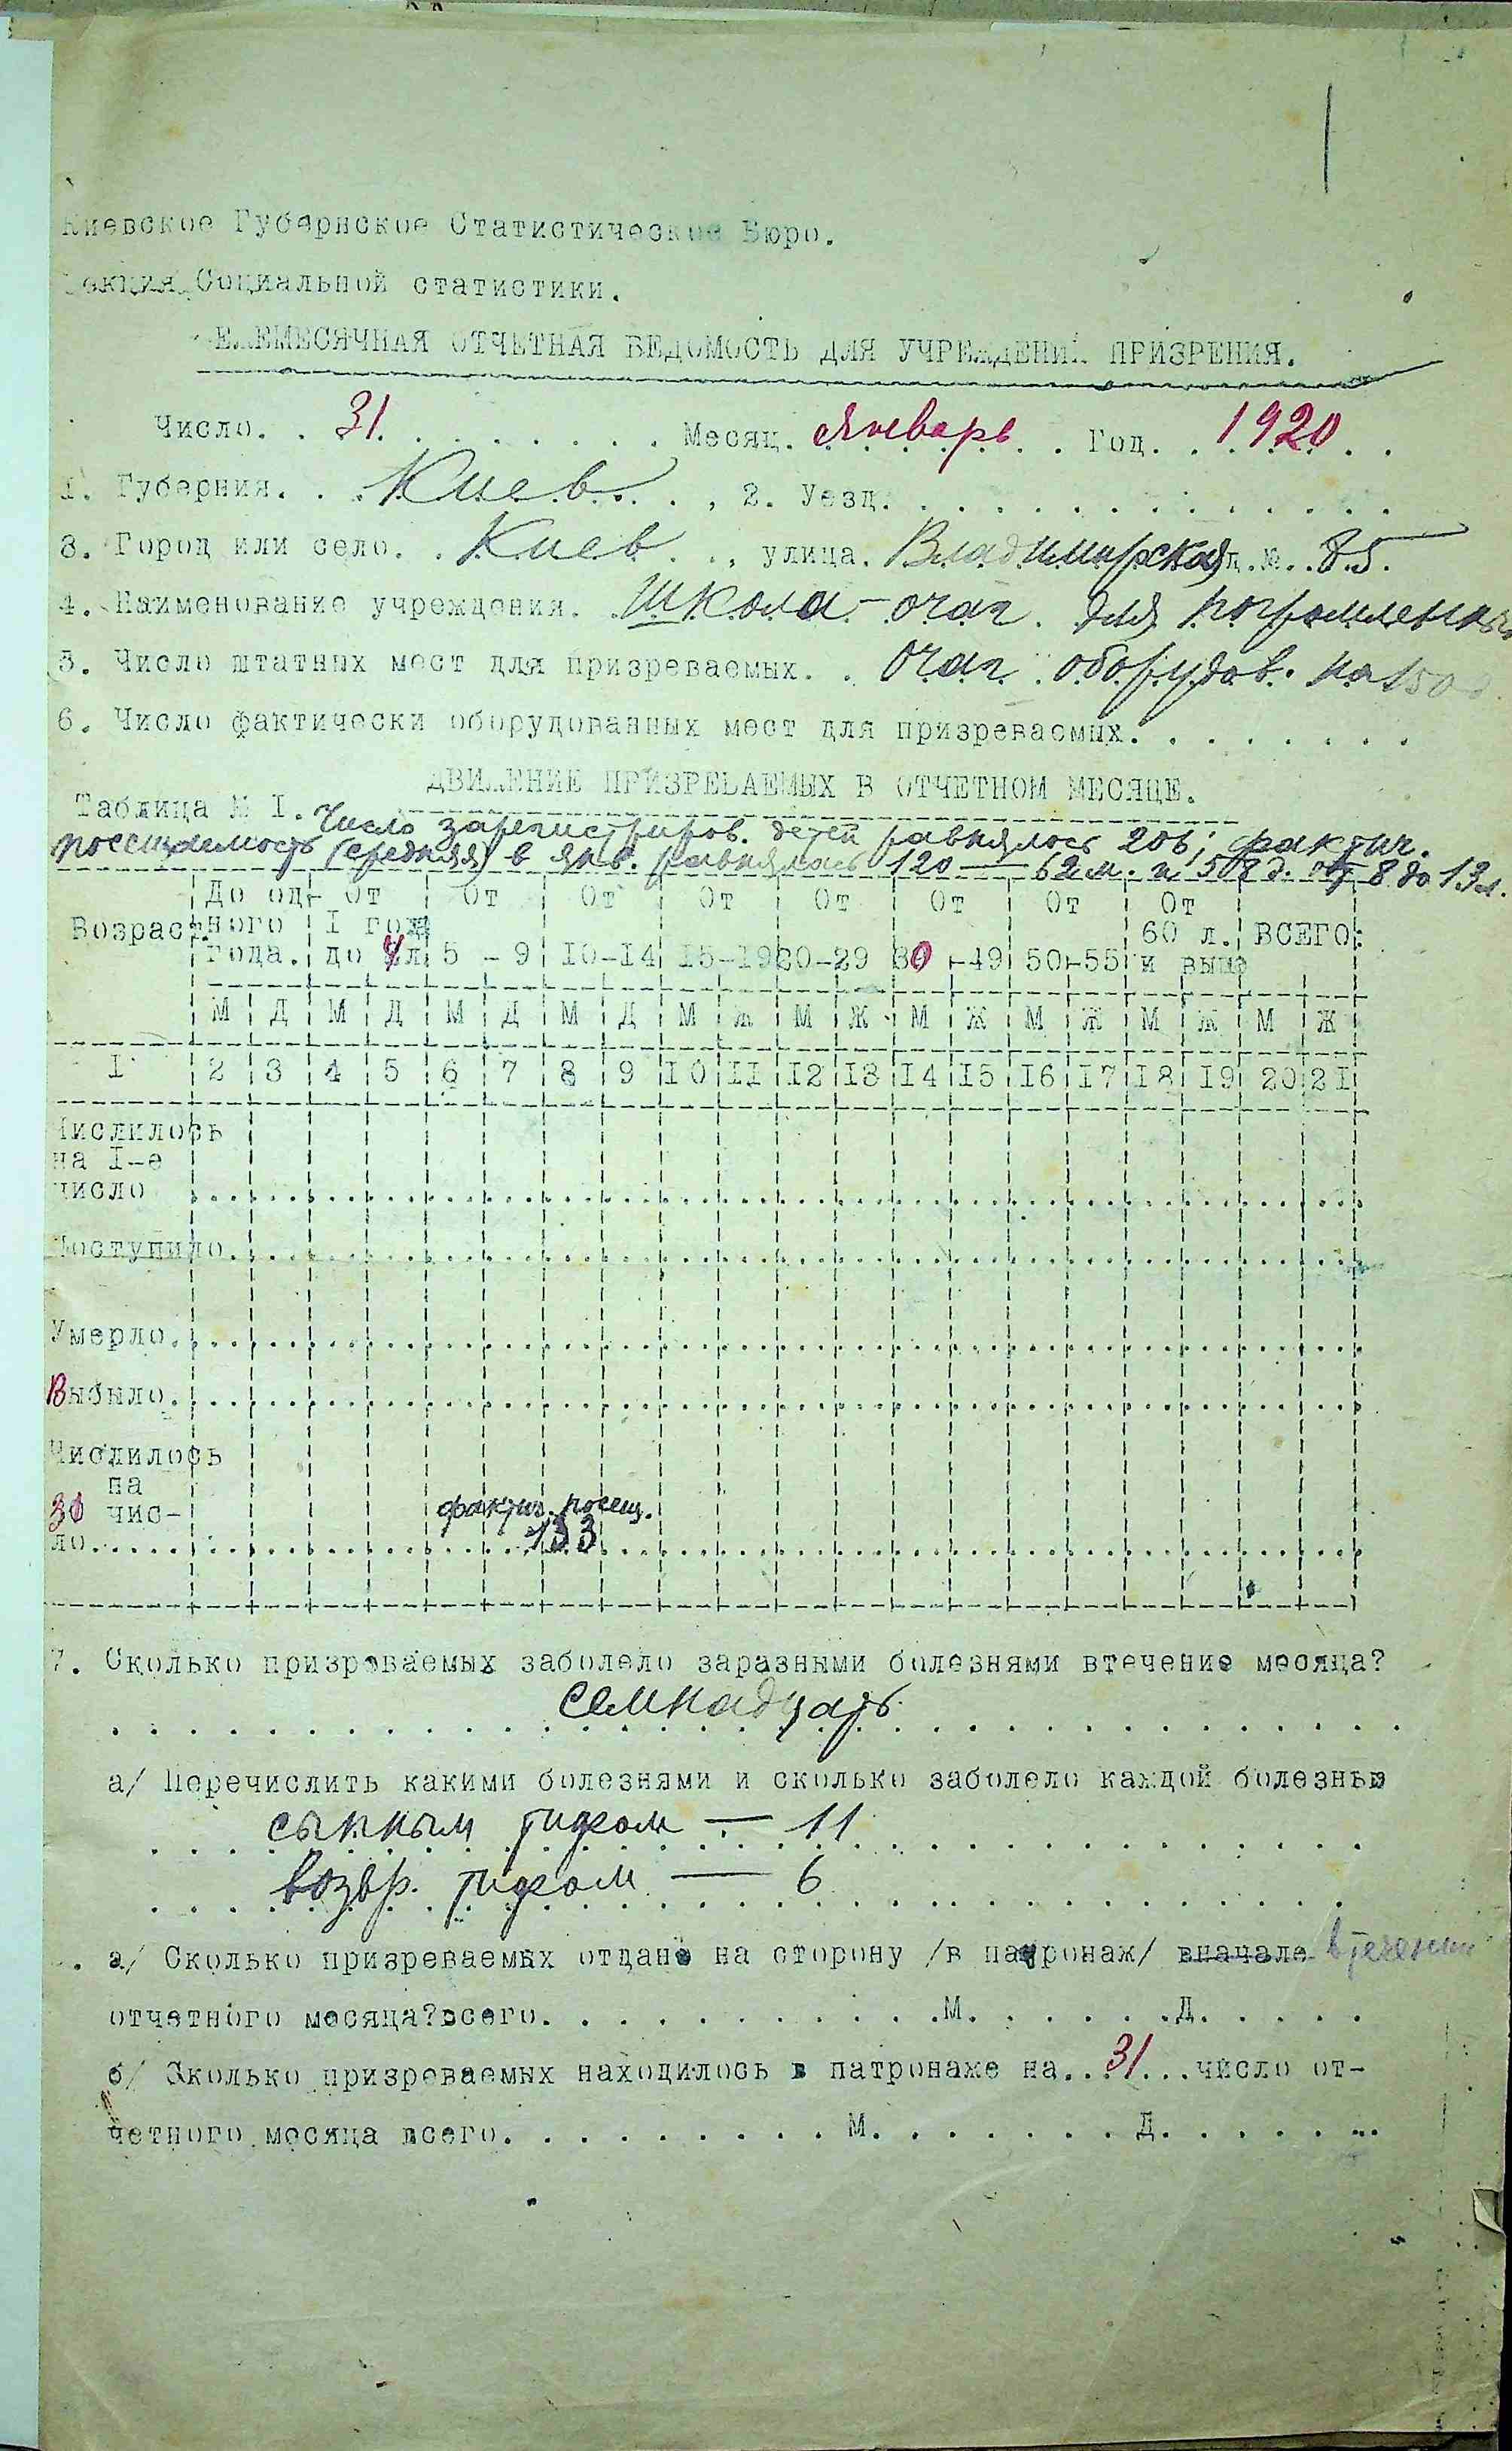 Киевское Губернское Статистическое Бюро.
Секция Социальной статистики.
ЕЖЕМЕСЯЧНАЯ ОТЧЕТНАЯ ВЕДОМОСТЬ ДЛЯ УЧРЕЖДЕНИЙ ПРИЗРЕНИЯ.
Число. . 31. . . . . . . . Месяц. Январь . . Год. . 1920 . .
1. Губерния. . Киев. . . , 2. Уезд. . . . . . . . . . . . . .
3. Город или село. . Киев . . , улица. Владимирская д. №. . 85.
4. Наименование учреждения. Школа - очаг для погромленных
5. Число штатных мест для призреваемых. . Очаг оборудов. на 150
6. Число фактически оборудованных мест для призреваемых. . . . . . . .
ДВИЖЕНИЕ ПРИЗРЕВАЕМЫХ В ОТЧЕТНОМ МЕСЯЦЕ.
Таблица № I. Число зарегистриров. детей равнялось 206; фактич.
посещаемость (средняя) в янв. равнялась 120 — 62 м. и 58 д. от 8 до 13 л.
Возраст До одного года. От I года до 4 л От 5 - 9 От 10-14 От 15-19 От 20-29 От 30 -49 От 50-55 От 60 л. и выше ВСЕГО:
М Д М Д М Д М Д М Ж М Ж М Ж М Ж М Ж М Ж
I 2 3 4 5 6 7 8 9 10 11 12 13 14 15 16 17 18 19 20 21
Числилось
на I-е
число
Поступило.
Умерло.
Выбыло.
Числилось
на
31 чис-
фактич. посещ.
ло. 133
7. Сколько призреваемых заболело заразными болезнями втечение месяца?
семнадцать
а/ Перечислить какими болезнями и сколько заболело каждой болезнью
сыпным тифом — 11
возвр. тифом — 6
а/ Сколько призреваемых отдано на сторону /в патронаж/ вначале в течении
отчетного месяца?всего. . . . . . . . . . .М. . . . . . .Д. . . . .
б/ Сколько призреваемых находилось в патронаже на. . 31. . .число от-
четного месяца всего. . . . . . . . . М. . . . . . . Д. . . . . . ..